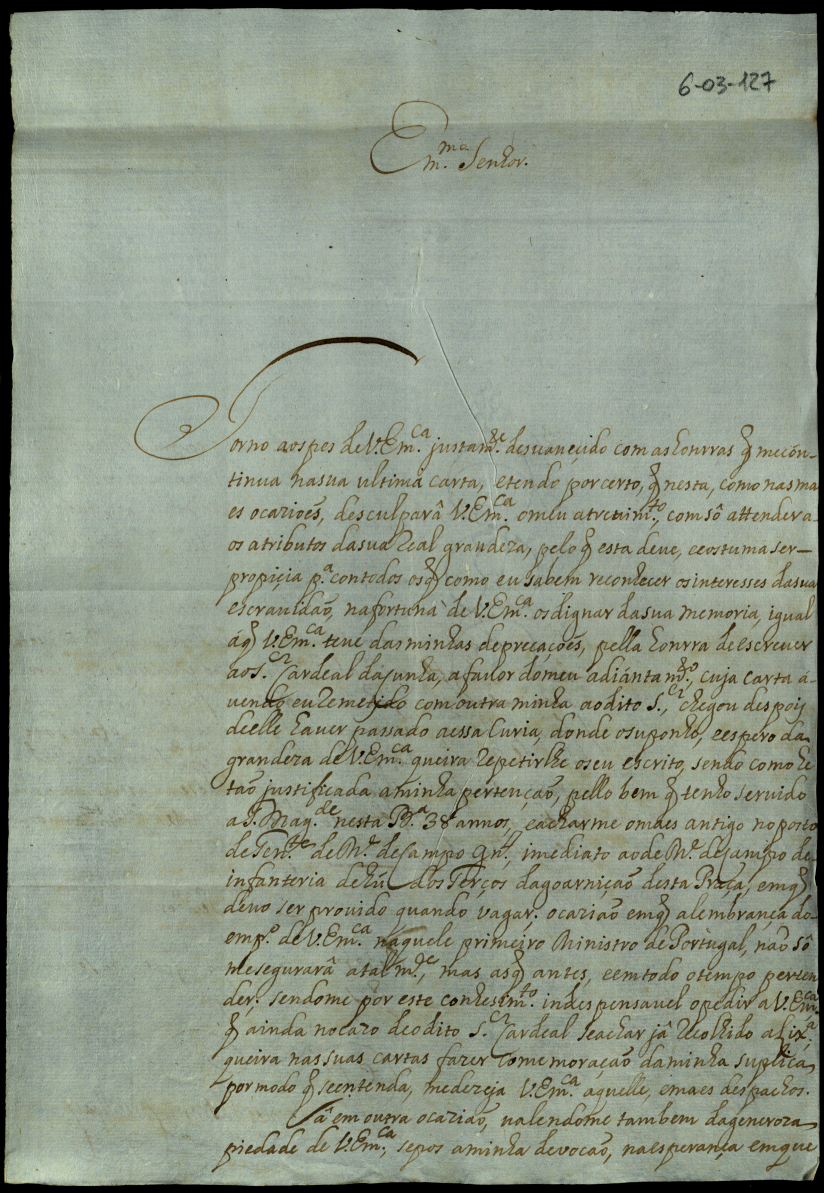 6-03-127
Em.mo Senhor.
Torno aos pes de V. Em.ca justam.te desuaneçido com as honrras q̃ me con-
tinua na sua ultima carta, e tendo por certo, q̃ nesta, como nas ma
es ocazioẽs, desculparâ V. Em.ca o meu atreuim.to, com sô attender a-
os atributos da sua Real grandeza, pelo q̃ esta deve, e costuma ser-
propiçia p.a con todos os q̃ como eu sabem reconhecer os interesses da sua
escrauidaõ, na fortuna de V. Em.ca os dignar da sua memoria, igual
â q̃ V. Em.ca teue das minhas depreçaçoẽs, pella honrra de escreuer
ao S.r Cardeal da Cunha, a fauor do meu adiántam.to, cuja carta a-
uendo eu Remetido com outra minha ao dito S.r, chegou despois
de elle hauer passado a essa Curia, donde o suponho, e espero da
grandeza de V. Em.ca queira repetirlhe o seu escrito, sendo como he
taõ justificada a minha pertençaõ, pello bem q̃ tenho seruido
a S. Mag.de nesta B.a 38 annos, e acharme o maes antigo no posto
de Ten.te de M.e de Campo gn.l, imediato ao de M.e de Campo de
infanteria de hũ dos Terços da goarniçaõ desta Praça, em q̃
devo ser prouido quando vagar: ocaziaõ em q̃ a lembrança do
emp.o de V. Em.ca naquele primeiro Ministro de Portugal, naõ sô
me segurarâ a tal m.ce, mas as q̃ antes, e em todo o tempo perten
der: sendome por este conhesim.to indespensauel o pedir a V. Em.ca
q̃ ainda no cazo de o dito S.r Cardeal se achar jâ recolhido a Lix.a
queira nas suas cartas fazer comemoraçaõ da minha suplica,
por modo q̃ se entenda, me dezeja V. Em.ca aquelle, e maes despachos.
Jâ em outra ocaziaõ, ualendome tambem da generoza
piedade de V. Em.ca, se pos a minha devocaõ, na esperança em que